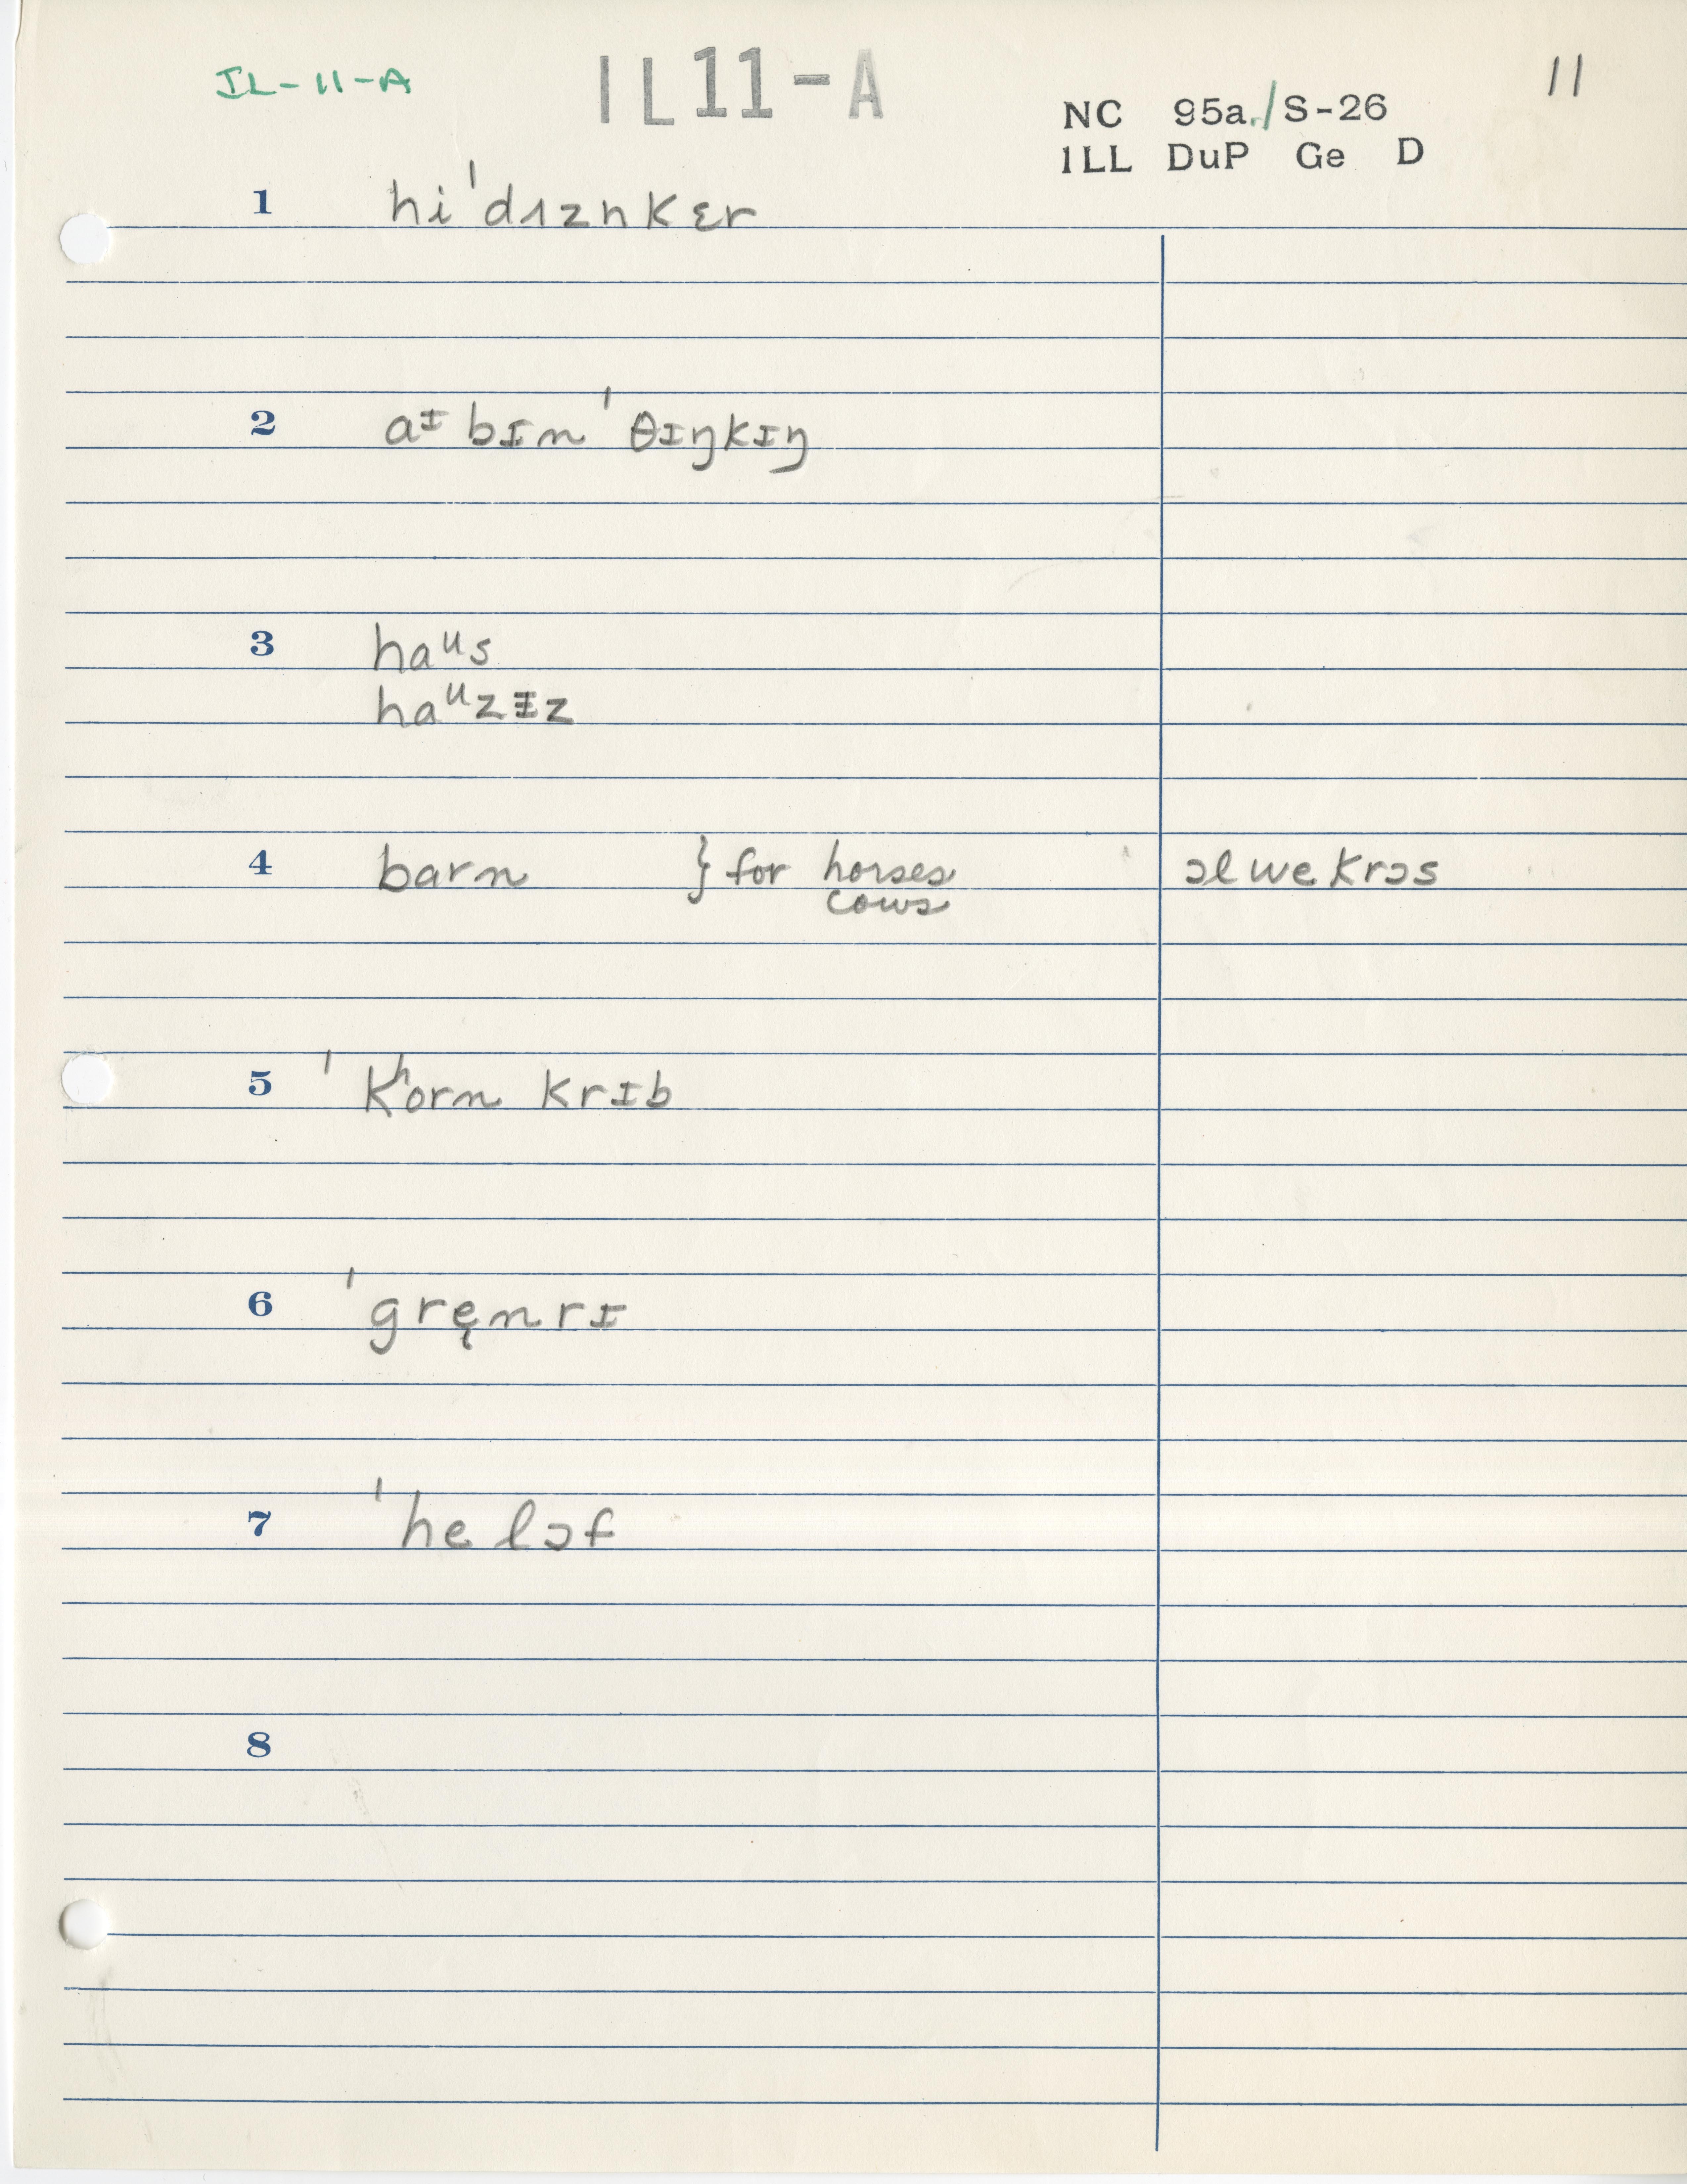 IL-11-A IL11-A 11
NC 95a./S-26
ILL DuP Ge D
1 hi ˈdɪznkɛr
2 aᶦ bɪn ˈθɪŋkɪŋ
3 haᵘs
haᵘzɪz
4 barn } for horses ɔlwe krɔs
cows
5 ˈkʰorn krɪb
6 ˈgrę nrɪ
7 ˈhe lɔf
8